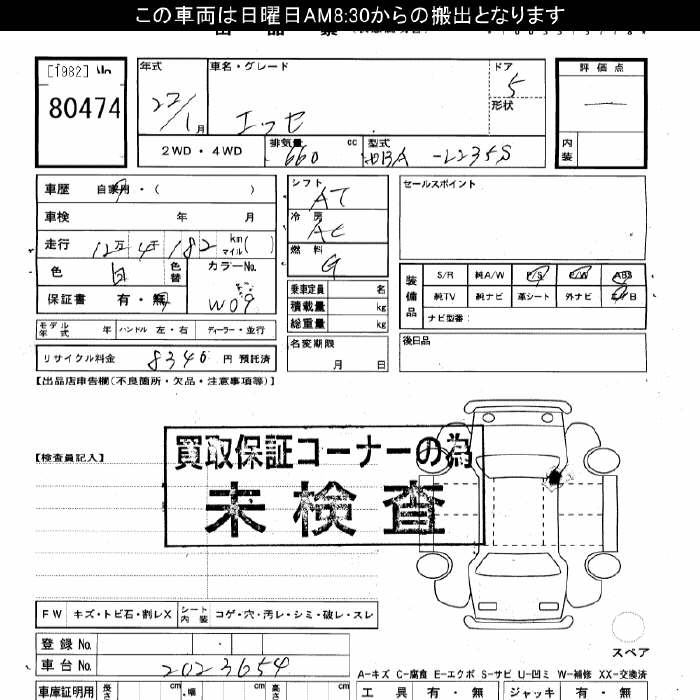 この車両は日曜日AM8:30からの搬出となります
[1982]
80474
年式
車名・グレード
ドア
評価点
22/1月
エッセ
5
形状
2WD・4WD
排気量
660
cc
型式
DBA-L235S
内装
車歴
自家用・( )
シフト
AT
セールスポイント
車検
年 月
冷房
AC
走行
12万4千182
km
マイル( )
燃料
G
色
白
色替
カラーNo.
W09
保証書
有・無
乗車定員
名
積載量
kg
総重量
kg
装備品
S/R
純A/W
P/S
P/W
ABS
純TV
純ナビ
革シート
外ナビ
エアB
ナビ型番:
モデル年式
年
ハンドル
左・右
ディーラー・並行
名変期限
月 日
後日品
リサイクル料金
8340
円 預託済
【出品店申告欄(不良箇所・欠品・注意事項等)】
【検査員記入】
買取保証コーナーの為
未検査
FW
キズ・トビ石・割レX
シート内装
コゲ・穴・汚レ・シミ・破レ・スレ
登録 No.
車台 No.
2023654
スペア
A-キズ C-腐食 E-エクボ S-サビ U-凹ミ W-補修 XX-交換済
車庫証明用
長さ
cm
幅
cm
高さ
cm
工具
有・無
ジャッキ
有・無